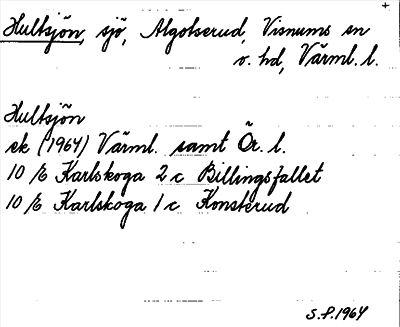 Hultsjön, sjö, Algotserud, Visnums sn
v. hd, Värml. l.
Hultsjön
ek (1964) Värml. samt Ör. l.
10 E Karlskoga 2 c Billingsfallet
10 E Karlskoga 1 c Konsterud
S.P. 1964